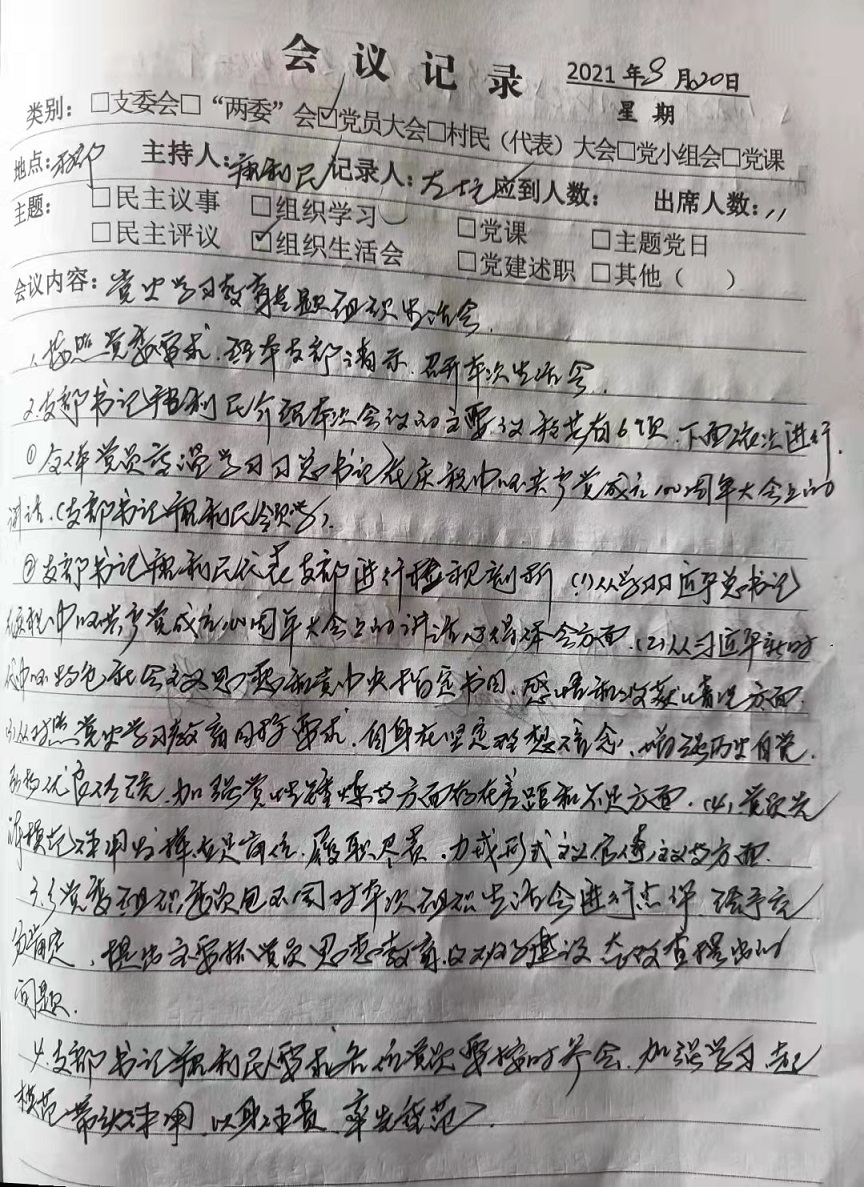 会议记录 2021年8月20日
星期
类别：□支委会□“两委”会☑党员大会□村民（代表）大会□党小组会□党课
地点：村部 主持人：利民 记录人： 应到人数： 出席人数：11
主题：□民主议事 □组织学习 □党课 □主题党日
□民主评议 ☑组织生活会 □党建述职 □其他（ ）
会议内容：党史学习教育专题组织生活会.
1、按照党委要求，经本支部请示，召开本次生活会.
2.支部书记利民介绍本次会议的主要议程共有6项，下面依次进行.
①全体党员学习习总书记在庆祝中国共产党成立100周年大会上的
讲话.（支部书记利民领学）.
②支部书记利民代表支部进行检视剖析（1）从学习习近平总书记
庆祝中国共产党成立100周年大会上的讲话心得体会方面.（2）从习近平新时
代中国特色社会主义思想和党中央指定书目，感悟和收获情况方面.
(3)从对照党史学习教育目标要求，自身在坚定理想信念、增强历史自觉.
优良传统，加强党性锤炼等方面存在差距和不足方面.（4）党员先
锋模范作用发挥，立足岗位，履职尽责，力戒形式主义官僚主义等方面.
3、党委组织委员包不同对本次组织生活会进行点评，给予充
分肯定，提出主要抓党员思想教育，查摆出的
问题.
4.支部书记利民要求各位党员要按时参会，加强学习，起
模范带头作用，以身作责，率先垂范.